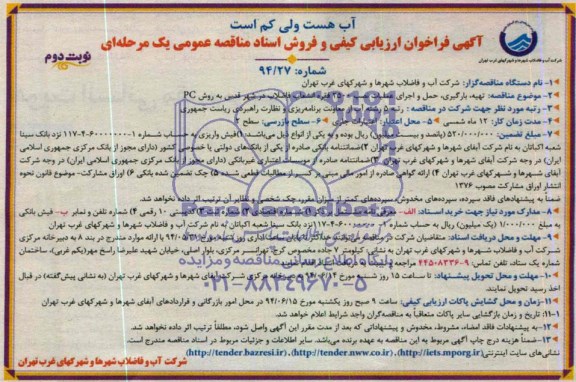 آب هست ولی کم است
آگهی فراخوان ارزیابی کیفی و فروش اسناد مناقصه عمومی یک مرحله‌ای
نوبت دوم
شماره: ۹۴/۲۷
شرکت آب و فاضلاب شهرها و شهرکهای غرب تهران
۱- نام دستگاه مناقصه‌گزار: شرکت آب و فاضلاب شهرها و شهرکهای غرب تهران
۲- موضوع مناقصه: تهیه، بارگیری، حمل و اجرای عملیات فاضلاب در شهر قدس به روش PC
۳- رتبه مورد نظر جهت شرکت در مناقصه: رتبه ۵ رشته آب از معاونت برنامه‌ریزی و نظارت راهبردی ریاست جمهوری
۴- مدت زمان کار: ۱۲ ماه شمسی ۵- محل اعتبار: اعتبارات جاری ۶- سطح بازرسی: سطح ۲
۷- مبلغ تضمین: ۵۲۰/۰۰۰/۰۰۰ (پانصد و بیست میلیون) ریال بوده و به یکی از انواع ذیل می‌باشد: ۱)فیش واریزی به حساب شماره ۱۱۷-۴-۶۰۰۰۰۰۰-۱ نزد بانک سینا
شعبه اکباتان به نام شرکت آبفای شهرها و شهرکهای غرب تهران ۲)ضمانتنامه بانکی صادره از یکی از بانکهای دولتی یا خصوصی کشور (دارای مجوز از بانک مرکزی جمهوری اسلامی
ایران) در وجه شرکت آبفای شهرها و شهرکهای غرب تهران ۳)ضمانتنامه صادره از موسسات اعتباری غیربانکی (دارای مجوز از بانک مرکزی جمهوری اسلامی ایران) در وجه شرکت
آبفای شهرها و شهرکهای غرب تهران ۴) ارائه گواهی صادره از امور مالی مبنی بر کسر از مطالبات قطعی شده ۵) چک تضمین شده بانکی ۶) اوراق مشارکت- موضوع قانون نحوه
انتشار اوراق مشارکت مصوب ۱۳۷۶
ضمناً به پیشنهادهای فاقد سپرده، سپرده‌های مخدوش، سپرده‌های کمتر از میزان مقرر، چک شخصی و نظایر آن ترتیب اثر داده نخواهد شد.
۸- مدارک مورد نیاز جهت خرید اسناد: الف- (کدپستی ۱۰ رقمی ۴) شماره تلفن و نمابر ب- فیش بانکی
به مبلغ ۱/۰۰۰/۰۰۰ (یک میلیون) ریال به حساب شماره ۱۱۷-۴-۶۰۰۰۰۰۰-۱ نزد بانک سینا شعبه اکباتان به نام شرکت آبفای شهرها و شهرکهای غرب تهران
۹- مهلت و محل دریافت اسناد: متقاضیان شرکت در مناقصه می‌توانند با ارائه موارد مندرج در بند ۸ به دبیرخانه مرکزی
شرکت آب و فاضلاب شهرها و شهرکهای غرب تهران به نشانی کیلومتر ۷ جاده مخصوص کرج، تهرانسر مرکزی، بلوار اصلی، خیابان شهید علیرضا راسخ مهر(یکم غربی)، ساختمان
شماره یک ستاد، تلفن تماس: ۹-۴۴۵۰۸۳۳۶ مراجعه
۱۰- مهلت و محل تحویل پیشنهاد: تا ساعت ۱۵ روز شنبه مورخ ۹۴/۰۶/۱۴ به دبیرخانه مرکزی شرکت آبفای شهرها و شهرکهای غرب تهران (به نشانی پیش‌گفته) در قبال
اخذ رسید تحویل نمایند.
۱۱- زمان و محل گشایش پاکات ارزیابی کیفی: ساعت ۹ صبح روز یکشنبه مورخ ۹۴/۰۶/۱۵ در محل امور بازرگانی و قراردادهای آبفای شهرها و شهرکهای غرب تهران
۱-۱۱: تاریخ و زمان بازگشایی سایر پاکات متعاقباً به مناقصه‌گران واجد شرایط اعلام خواهد شد.
۱۲- به پیشنهادات فاقد امضاء، مشروط، مخدوش و پیشنهاداتی که بعد از مدت مقرر این آگهی واصل شود، مطلقاً ترتیب اثر داده نخواهد شد.
۱۳- ضمناً هزینه درج چاپ آگهی مربوط به این مناقصه به عهده برنده می‌باشد. سایر اطلاعات و جزئیات مربوط در اسناد مناقصه مندرج است.
نشانی سایت اینترنتی (http://iets.mporg.ir)، (http://tender.nww.co.ir)، (http://tender.bazresi.ir)
شرکت آب و فاضلاب شهرها و شهرکهای غرب تهران
ParsNamadData
پایگاه اطلاع رسانی مناقصه و مزایده
۰۲۱-۸۸۳۴۹۶۷۰-۵